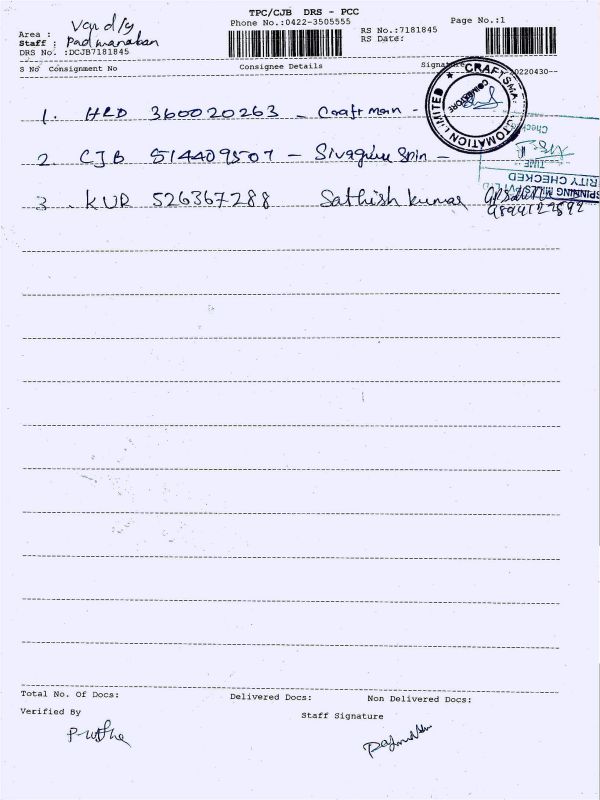 TPC/CJB DRS - PCC
Phone No.:0422-3505555
Page No.:1
Area : Van d/y
Staff : Padmanaban
DRS No. :DCJB7181845
RS No.:7181845
RS Date:
S No Consignment No Consignee Details Signature
20220430--
1. HRD 360020263 - Craftman -
2. CJB 514409507 - Sivaguru Spin -
3 KUR 526367288 Sathish kumar
CRAFTSMAN AUTOMATION LIMITED
TIME
RITY CHECKED
SPINNING MILLS
Total No. Of Docs: Delivered Docs: Non Delivered Docs:
Verified By
Staff Signature